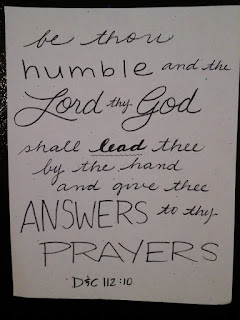 be thou
humble and the
Lord thy God
shall lead thee
by the hand
and give thee
ANSWERS to thy
PRAYERS
D&C 112:10